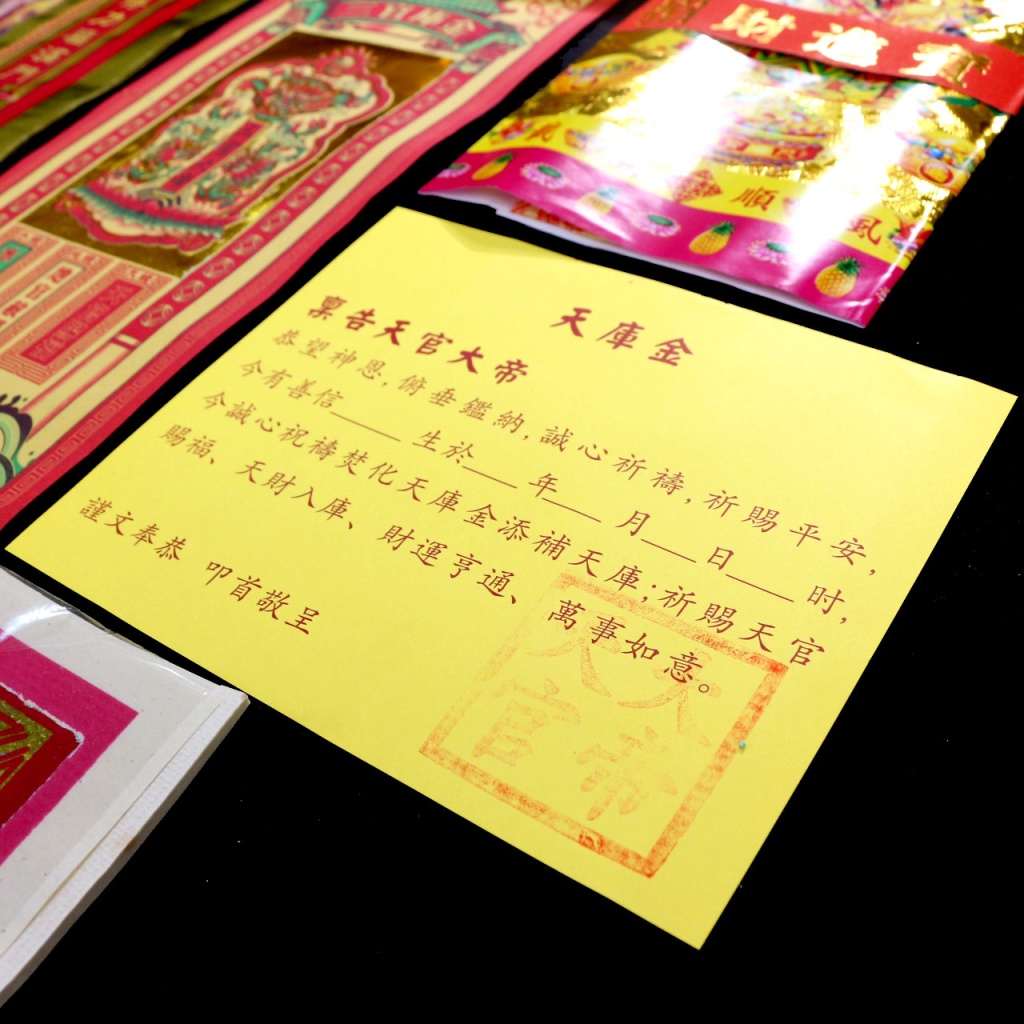 財運寶
順風
天庫金
稟告天官大帝
恭望神恩,俯垂鑑納,誠心祈禱,祈賜平安,
今有善信____ 生於____年____月____日____时,
今誠心祝禱焚化天庫金添補天庫;祈賜天官
賜福、天財入庫、財運亨通、萬事如意。
謹文奉恭 叩首敬呈
天官
大帝